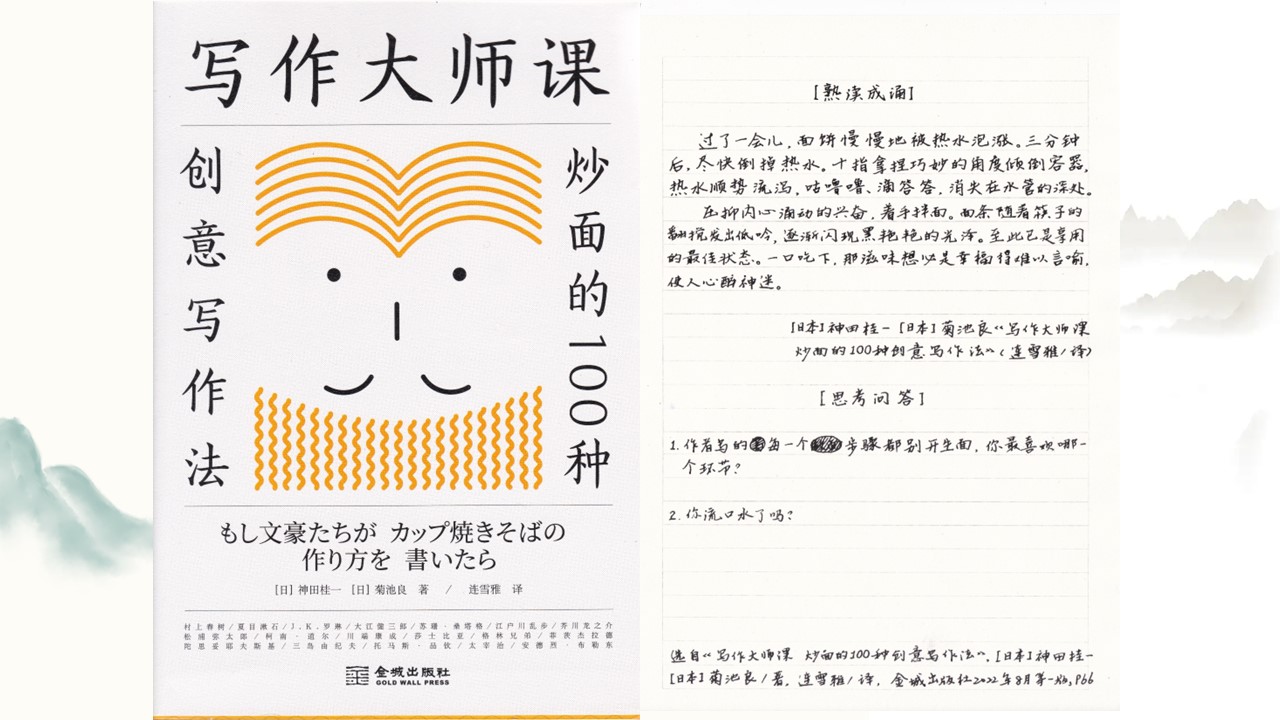 写作大师课
创意写作法
炒面的100种
もし文豪たちが カップ焼きそばの
作り方を 書いたら
[日] 神田桂一 [日] 菊池良 著 / 连雪雅 译
村上春树/夏目漱石/J.K.罗琳/大江健三郎/苏珊·桑塔格/江户川乱步/芥川龙之介
松浦弥太郎/柯南·道尔/川端康成/莎士比亚/格林兄弟/菲茨杰拉德
陀思妥耶夫斯基/三岛由纪夫/托马斯·品钦/太宰治/安德烈·布勒东
金城出版社
GOLD WALL PRESS
[熟读成诵]
过了一会儿,面饼慢慢地被热水泡涨。三分钟
后,尽快倒掉热水。十指拿捏巧妙的角度倾倒容器,
热水顺势流泻,咕噜噜、滴答答,消失在水管的深处。
压抑内心涌动的兴奋,着手拌面。面条随着筷子的
翻搅发出低吟,逐渐闪现黑艳艳的光泽。至此已是享用
的最佳状态。一口吃下,那滋味想必是幸福得难以言喻,
使人心醉神迷。
[日本]神田桂一 [日本]菊池良《写作大师课
炒面的100种创意写作法》(连雪雅/译)
[思考问答]
1.作者写的每一个步骤都别开生面,你最喜欢哪一
个环节?
2.你流口水了吗?
选自《写作大师课 炒面的100种创意写作法》,[日本]神田桂一
[日本]菊池良/著,连雪雅/译,金城出版社2022年8月第一版,P66